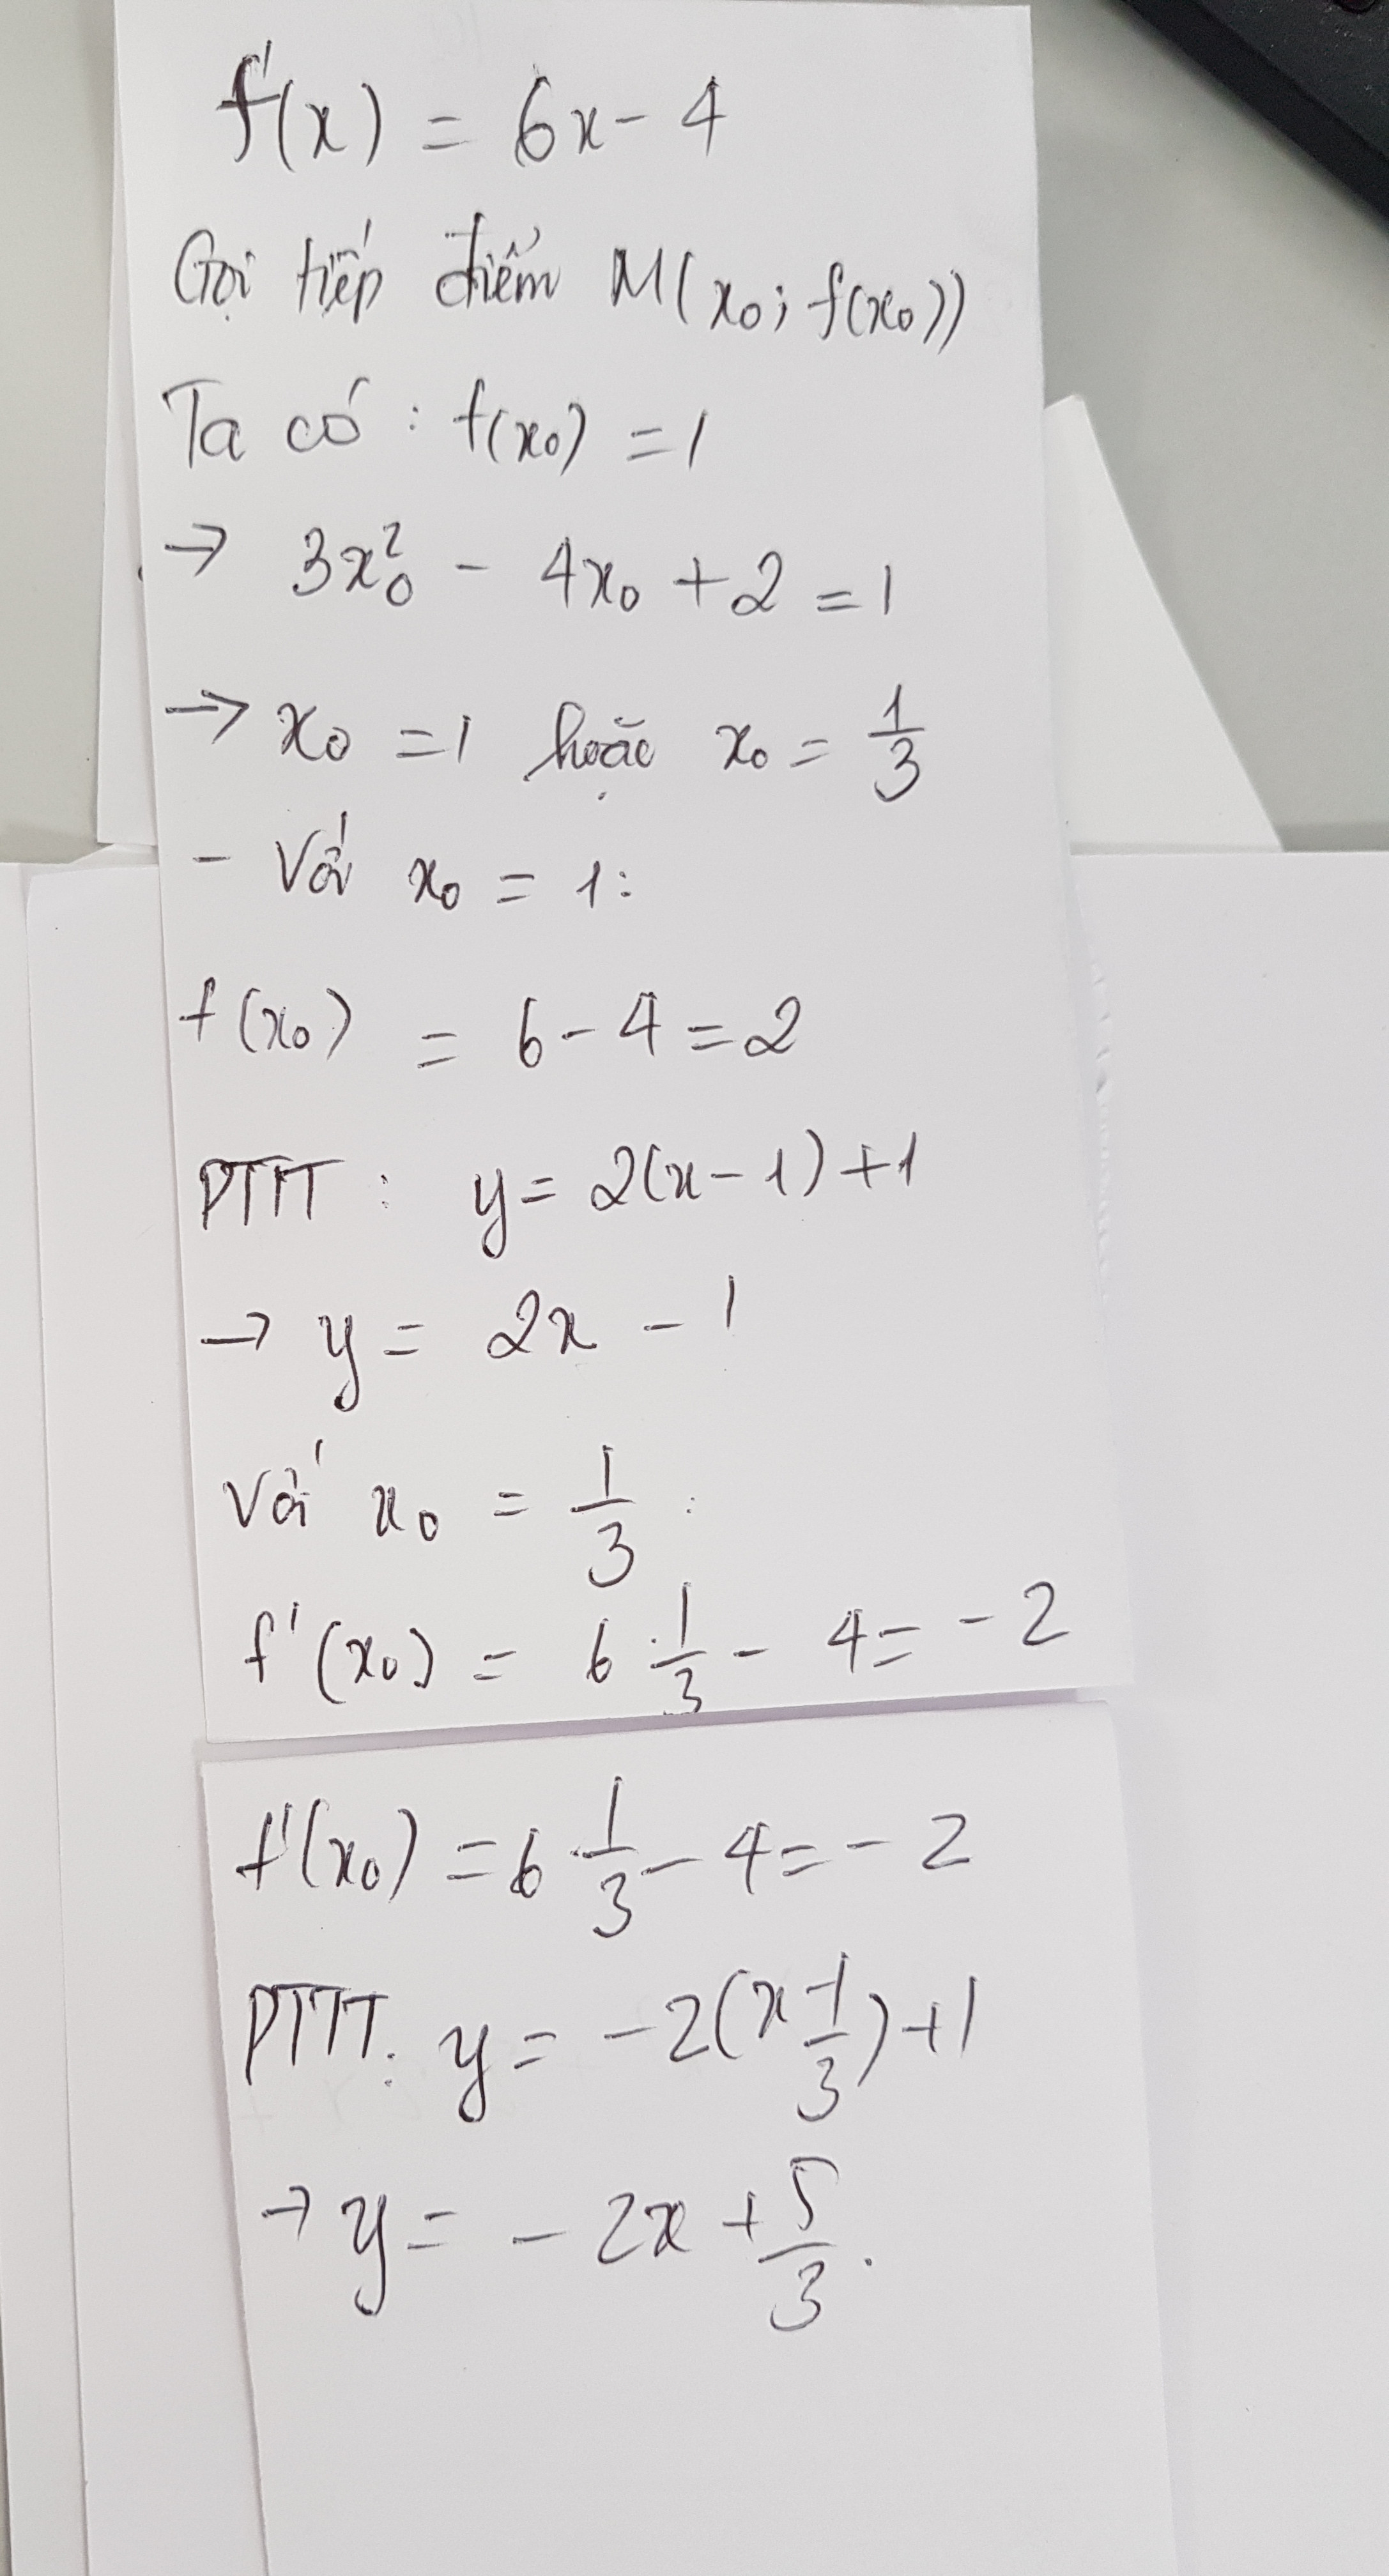 f'(x) = 6x - 4
Gọi tiếp điểm M(x₀; f(x₀))
Ta có : f(x₀) = 1
→ 3x₀² - 4x₀ + 2 = 1
→ x₀ = 1 hoặc x₀ = 1/3
- Với x₀ = 1:
f(x₀) = 6 - 4 = 2
PTTT : y = 2(x - 1) + 1
→ y = 2x - 1
Với x₀ = 1/3 :
f'(x₀) = 6 . 1/3 - 4 = - 2
f'(x₀) = 6 . 1/3 - 4 = - 2
PTTT: y = -2(x - 1/3) + 1
→ y = - 2x + 5/3 .